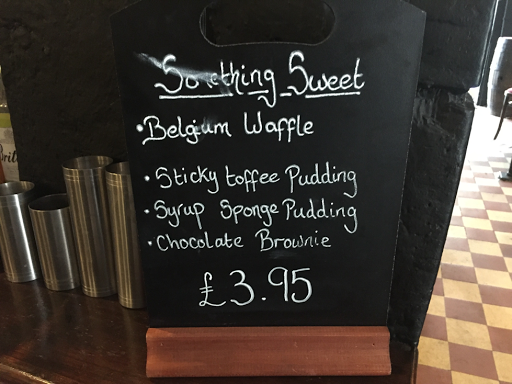 Something Sweet
• Belgium Waffle
• Sticky toffee Pudding
• Syrup Sponge Pudding
• Chocolate Brownie
£3.95